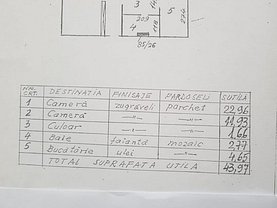 3
209
4
5
85/26
NR. CRT. DESTINATIA FINISAJE PARDOSELI SUTILA
1 Cameră zugrăveli parchet 22,96
2 Cameră —"— —"— 11,93
3 Culoar —"— —"— 1,66
4 Baie faianță mozaic 2,77
5 Bucătărie ulei —"— 4,65
TOTAL SUPRAFATA UTILA 43,97